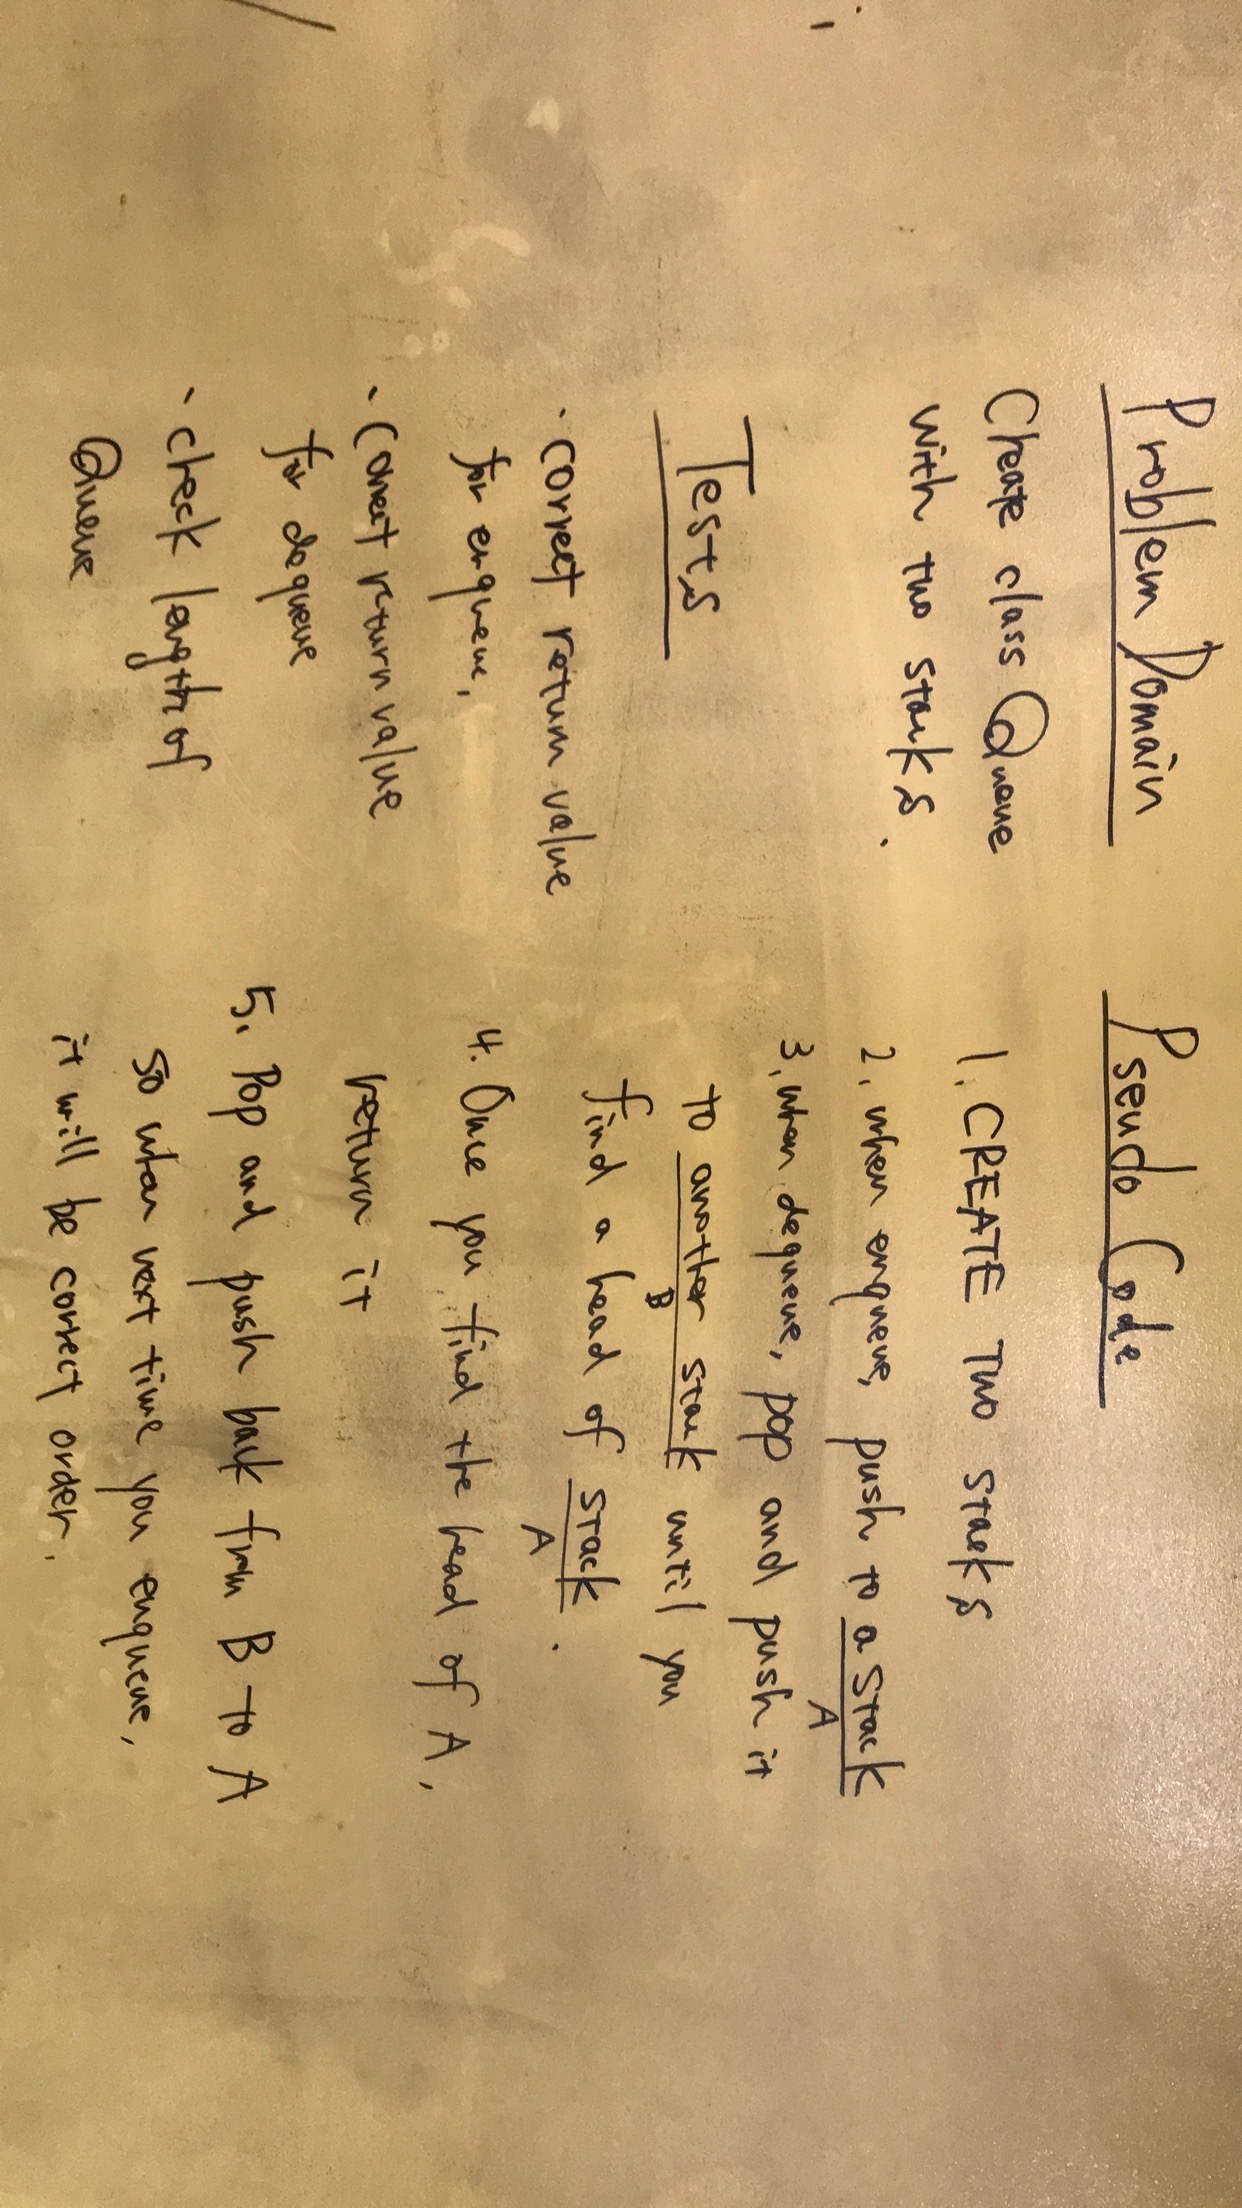 Problem Domain
Create class Queue
with two stacks.
Tests
· correct return value
for enqueue,
· correct return value
for dequeue
· check length of
Queue
Pseudo Code
1. CREATE TWO stacks
2. when enqueue, push to a stack
A
3. when dequeue, pop and push it
to another stack until you
B
find a head of stack.
A
4. Once you find the head of A,
return it
5. Pop and push back from B to A
so when next time you enqueue,
it will be correct order.